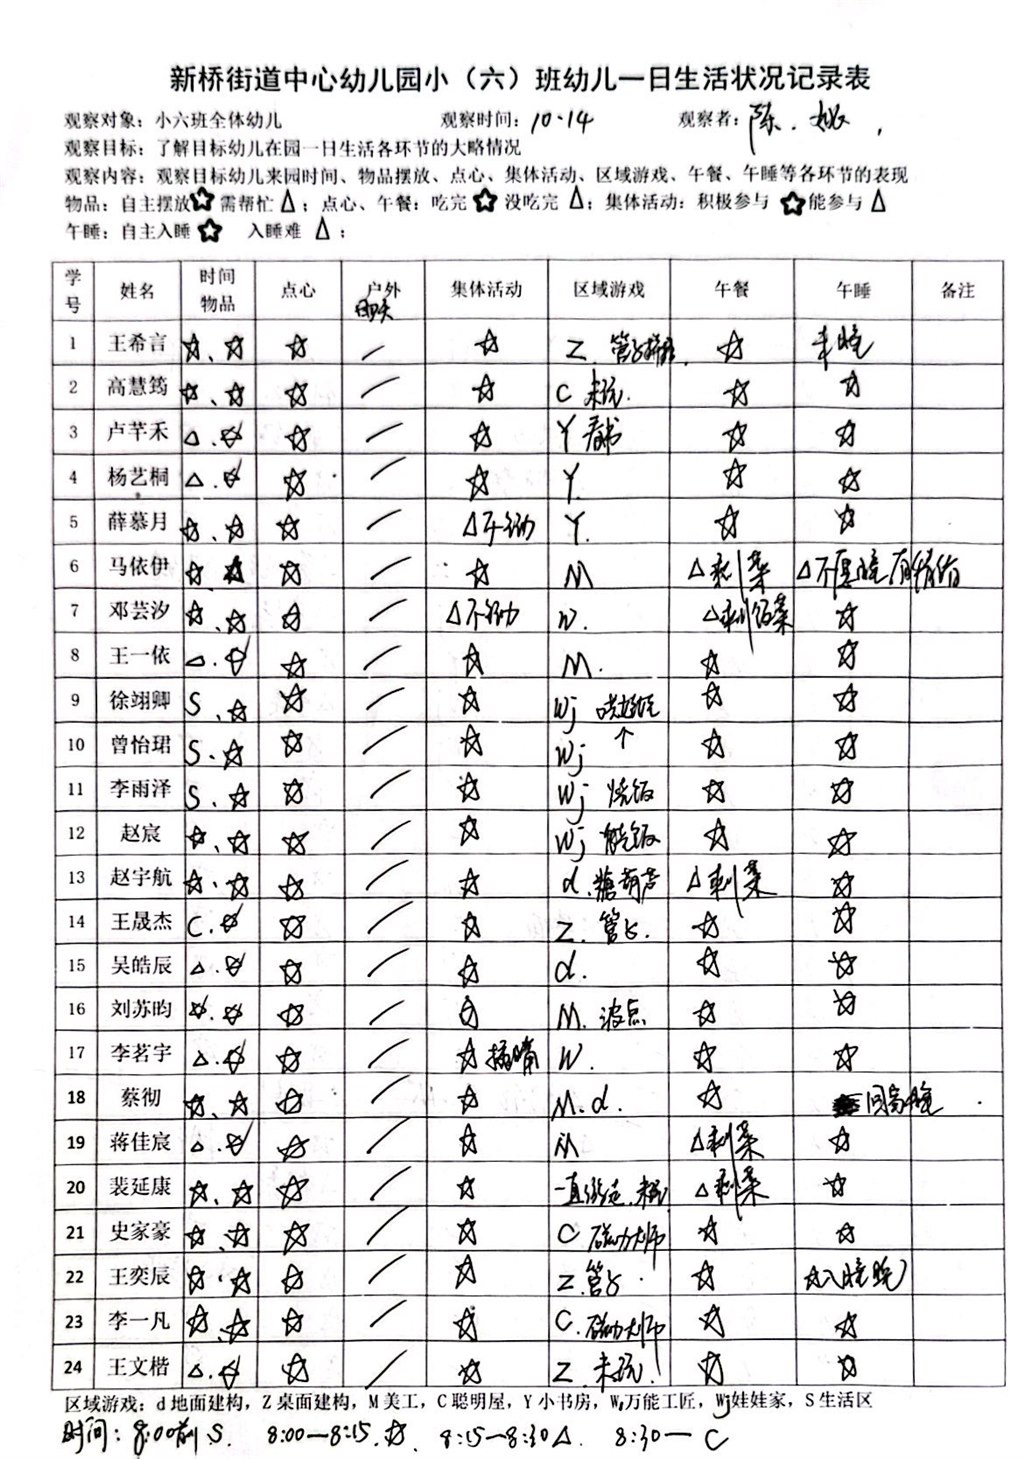 新桥街道中心幼儿园小（六）班幼儿一日生活状况记录表
观察对象：小六班全体幼儿 观察时间：10.14 观察者：陈．姚
观察目标：了解目标幼儿在园一日生活各环节的大略情况
观察内容：观察目标幼儿来园时间、物品摆放、点心、集体活动、区域游戏、午餐、午睡等各环节的表现
物品：自主摆放☆需帮忙△；点心、午餐：吃完☆没吃完△；集体活动：积极参与☆能参与△
午睡：自主入睡☆ 入睡难△；
学号 姓名 时间物品 点心 户外 集体活动 区域游戏 午餐 午睡 备注
1 王希言 ☆、☆ ☆ — ☆ Z. 管子 ☆ 未睡
2 高慧筠 ☆、☆ ☆ — ☆ C 未玩. ☆ ☆
3 卢芊禾 △.☆ ☆ — ☆ Y 看书 ☆ ☆
4 杨艺桐 △.☆ ☆ — ☆ Y. ☆ ☆
5 薛慕月 ☆、☆ ☆ — △不 Y. ☆ ☆
6 马依伊 ☆ ☆ ☆ — ☆ M △剩菜 △不愿睡
7 邓芸汐 ☆、☆ ☆ — △不 W. △剩饭菜 ☆
8 王一依 △.☆ ☆ — ☆ M. ☆ ☆
9 徐翊卿 S、☆ ☆ — ☆ Wj ☆ ☆
10 曾怡珺 S.☆ ☆ — ☆ Wj ↑ ☆ ☆
11 李雨泽 S.☆ ☆ — ☆ Wj 烧饭 ☆ ☆
12 赵宸 ☆、☆ ☆ — ☆ Wj 烧饭 ☆ ☆
13 赵宇航 ☆.☆ ☆ — ☆ d.糖葫芦 △剩菜 ☆
14 王晟杰 C.☆ ☆ — ☆ Z. 管子. ☆ ☆
15 吴皓辰 △.☆ ☆ — ☆ d. ☆ ☆
16 刘苏昀 ☆.☆ ☆ — ☆ M. 波点 ☆ ☆
17 李茗宇 △.☆ ☆ — ☆ 插嘴 W. ☆ ☆
18 蔡彻 ☆、☆ ☆ — ☆ M.d. ☆
19 蒋佳宸 △.☆ ☆ — ☆ M △剩菜 ☆
20 裴延康 ☆、☆ ☆ — ☆ 一直 △剩菜 ☆
21 史家豪 ☆.☆ ☆ — ☆ C 磁力大师 ☆ ☆
22 王奕辰 ☆.☆ ☆ — ☆ Z.管子. ☆ ☆入睡晚
23 李一凡 ☆.☆ ☆ — ☆ C.磁力大师 ☆ ☆
24 王文楷 △.☆ ☆ — ☆ Z. 未玩! ☆ ☆
区域游戏：d地面建构，Z桌面建构，M美工，C聪明屋，Y小书房，W万能工匠，Wj娃娃家，S生活区
时间：8:00前 S. 8:00—8:15.☆. 8:15—8:30△. 8:30— C